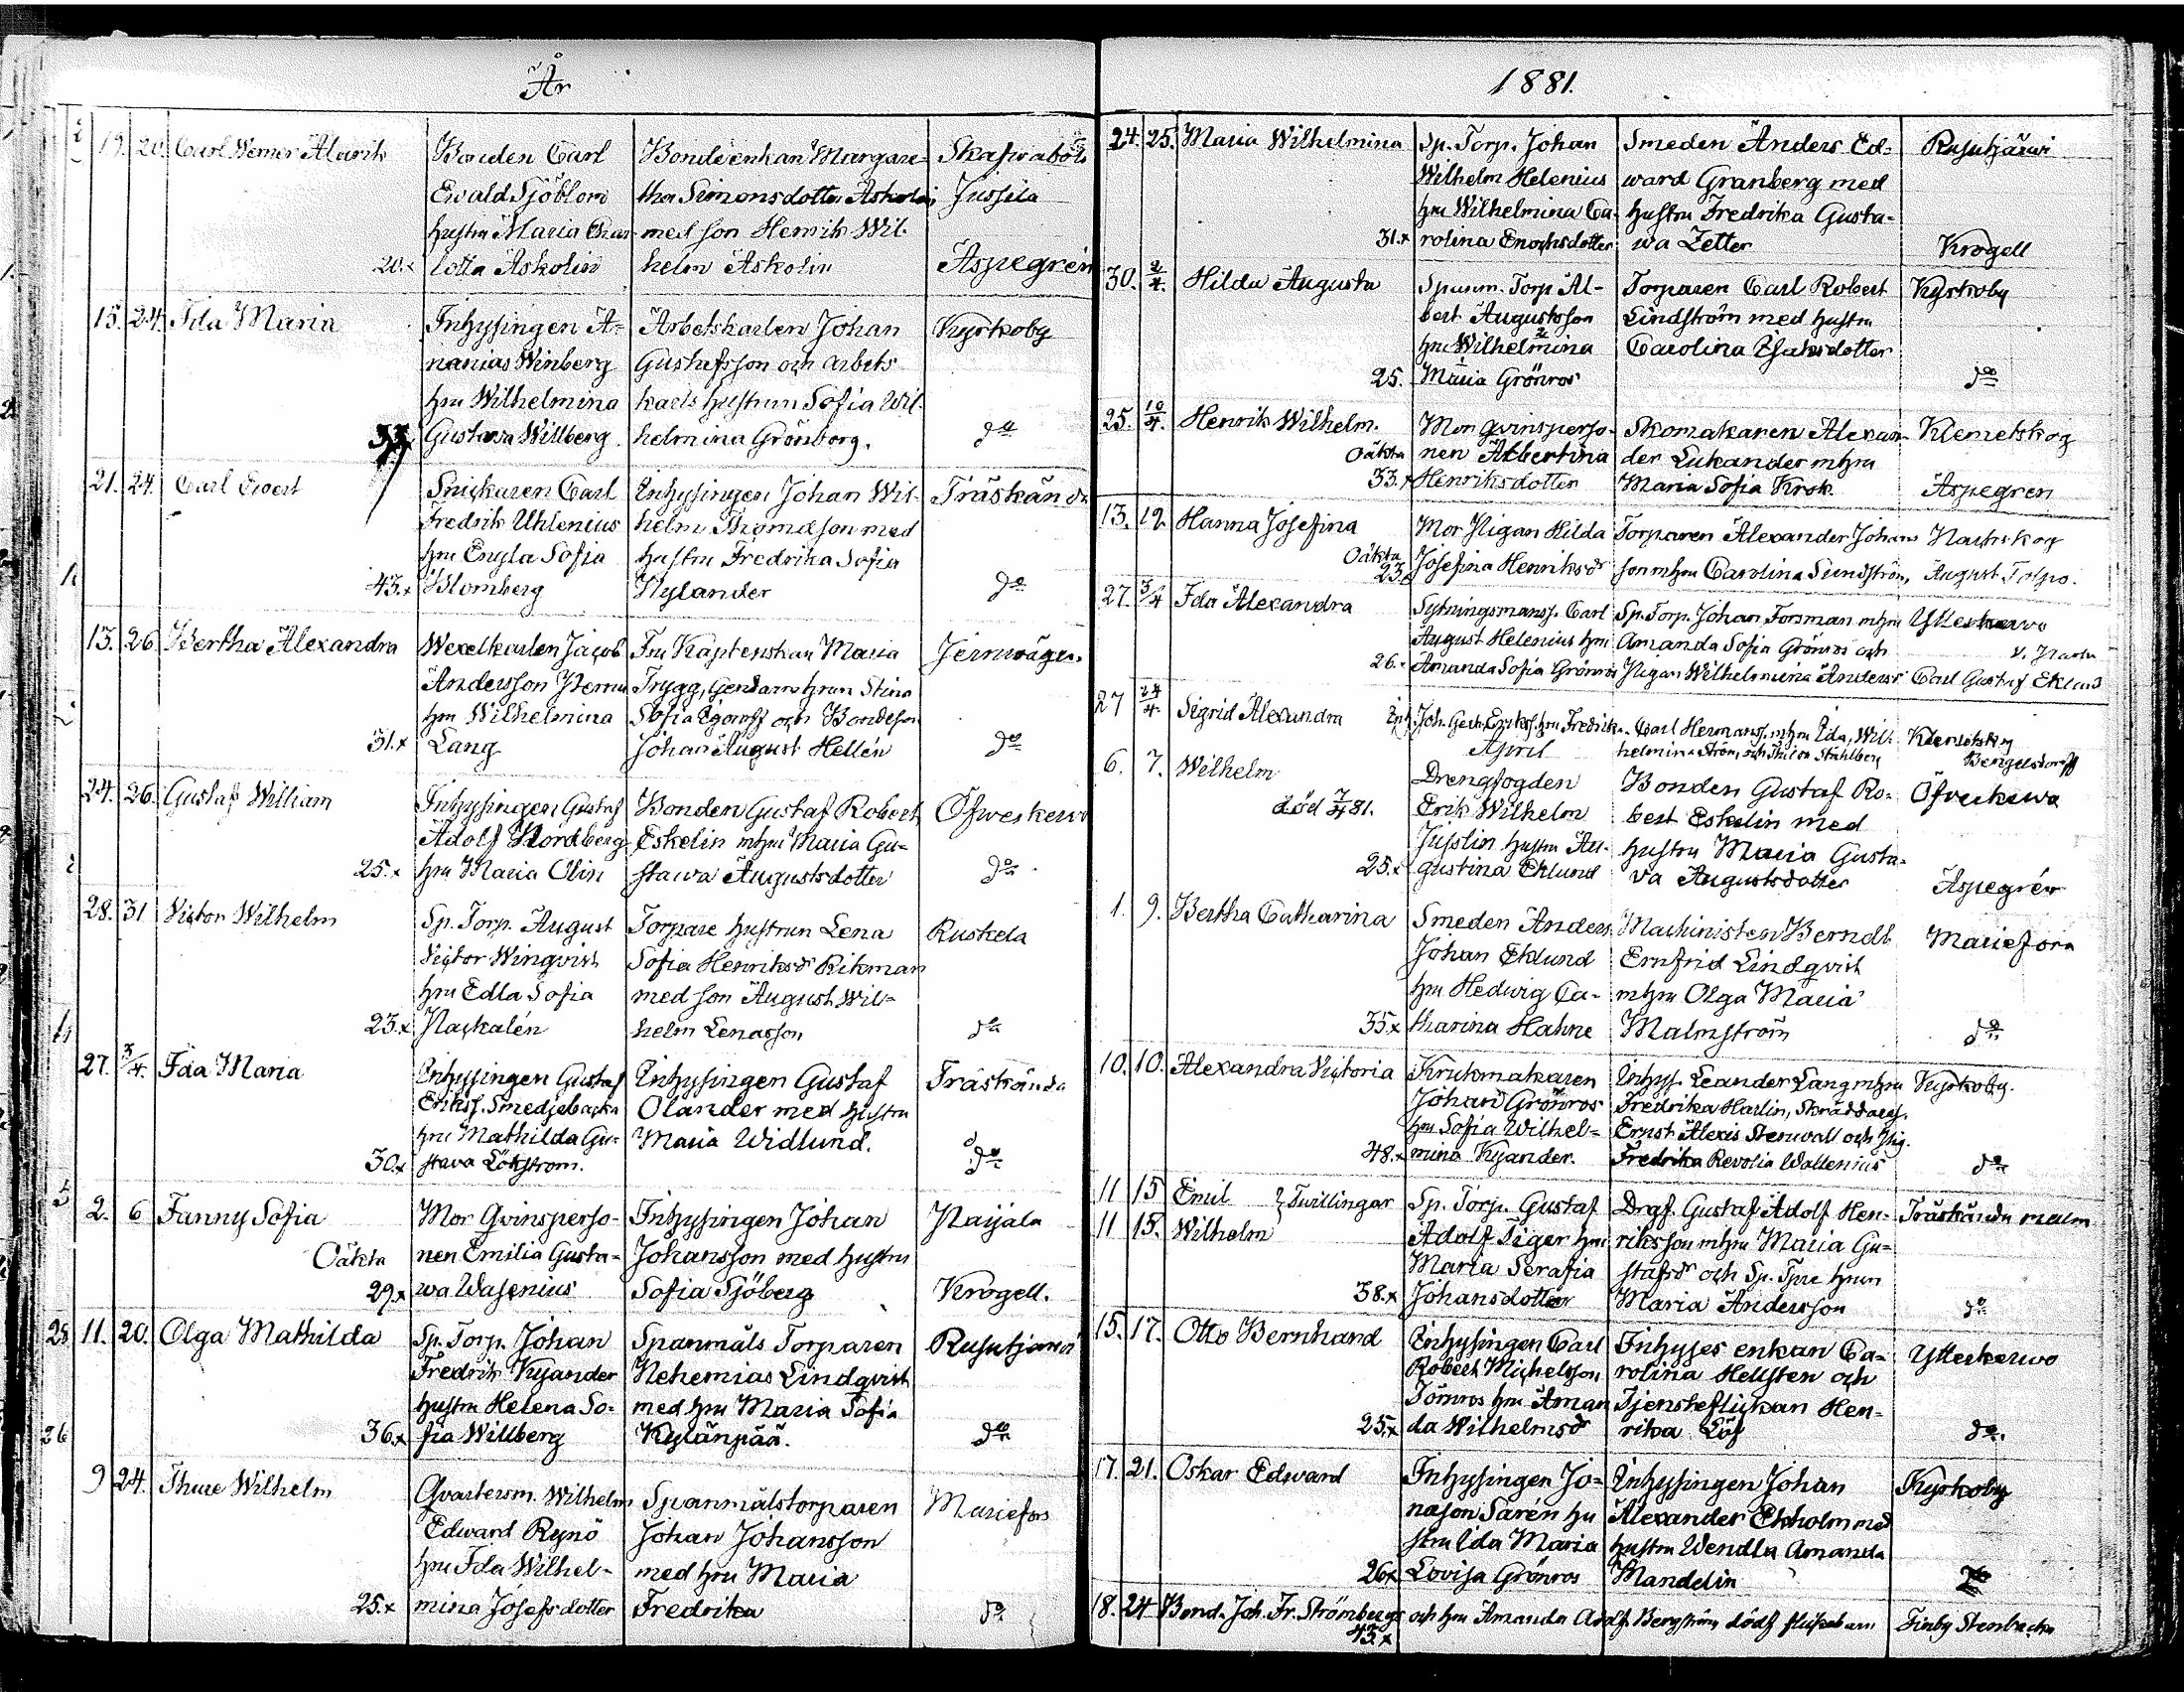 År
19. 20. Carl Werner Alarik
Bonden Carl
Ewald Sjöblom
hustru Maria Char-
20.x lotta Askolin
Bondeenkan Margare-
tha Simonsdotter Askolin
med son Henrik Wil-
helm Askolin
Jussila
Aspegrén
15. 24. Ida Maria
Inhysingen A-
nanias Winberg
hru Wilhelmina
Gustava Willberg
Arbetskarlen Johan
Gustafsson och arbets-
karls hustrun Sofia Wil-
helmina Grönborg.
Kyrkoby
do
21. 24. Carl Evert
Snickaren Carl
Fredrik Uhlenius
hru Engla Sofia
43.x Blomberg
Inhysingen Johan Wil-
helm Thomasson med
hustru Fredrika Sofia
Nylander
Träskända
do
13. 26 Bertha Alexandra
Wexelkarlen Jacob
Andersson
hru Wilhelmina
31.x Lang
Fru Kaptenskan Maria
Trygg, Gendarm hrun Stina
Sofia och Bondeson
Johan August Hellén
Jernvägen
do
24. 26. Gustaf William
Inhysingen Gustaf
Adolf Nordberg
25.x hru Maria Olin
Bonden Gustaf Robert
Eskelin mhru Maria Gu-
stawa Augustsdotter
Öfverkervo
do
28. 31 Victor Wilhelm
Sp. Torp. August
Victor Winqvist
hru Edla Sofia
23.x Nackalén
Torpare hustrun Lena
Sofia Henriksdr Rikman
med son August Wil-
helm Lenasson
Ruskela
do
27. 3/4. Ida Maria
Inhysingen Gustaf
Eriks. Smedjebacka
hru Mathilda Gu-
30.x stava Löfström.
Inhysingen Gustaf
Olander med hustru
Maria Widlund.
Träskända
do
2. 6 Fanny Sofia
Oäkta
Mor Qvinsperso-
nen Emilia Gusta-
29.x wa Wasenius
Inhysingen Johan
Johansson med hustru
Sofia Sjöberg
Naijala
Krogell.
11. 20. Olga Mathilda
Sp. Torp. Johan
Fredrik Kyander
hustru Helena So-
36.x fia Willberg
Spanmåls Torparen
Nehemias Lindqvist
med hru Maria Sofia
Kylänpää.
Rusutjärvi
do
9 24. Thure Wilhelm
Qvarterm. Wilhelm
Edward Rynö
hru Ida Wilhel-
25.x mina Josefsdotter
Spanmålstorparen
Johan Johansson
med hru Maria
Fredrika
Mariefors
do
1881.
24. 25. Maria Wilhelmina
Sp. Torp. Johan
Wilhelm Helenius
hru Wilhelmina Ca-
31.x rolina Enochsdotter
Smeden Anders Ed-
ward Granberg med
hustru Fredrika Gusta-
wa Zetter
Rusutjärvi
Krogell
30. 2/4. Hilda Augusta
Spanm. Torp Al-
bert Augustsson
hru Wilhelmina
25. Maria Grönros
Torparen Carl Robert
Lindström med hustru
Carolina Isaksdotter
Kyrkoby
do
25. 10/4. Henrik Wilhelm.
Oäkta
Mor qvinsperso-
nen Albertina
33.x Henriksdotter
Skomakaren Alexan-
der Lukander mhru
Maria Sofia Krok
Klemetskog
Aspegren
13. 12 Hanna Josefina
Oäkta
Mor Pigan Hilda
23. Josefina Henriksdr
Torparen Alexander Johans
son mhru Carolina Sundström,
Nackskog
August Tolpo.
27. 3/4 Ida Alexandra
Sytningsmans. Carl
August Helenius hru
26. Amanda Sofia Grönros
Sp. Torp. Johan Forsman mhru
Amanda Sofia Grönros och
Pigan Wilhelmina Andersd
Ytterkervo
Carl Gustaf Eklund
27 24/4. Sigrid Alexandra
Inh. Joh. Gust. Eriks. hru Fredrika
Carl Hermans. mhru Ida, Wil-
helmina Ström, och Thilda Stahlberg
Klemetskog
Bengelsdorff
April
6. 7. Wilhelm
död 7/4 81.
Drengfogden
Erik Wilhelm
Jusslin hustru Au-
25.x gustina Eklund
Bonden Gustaf Ro-
bert Eskelin med
hustru Maria Gusta-
va Augustsdotter
Öfverkervo
Aspegrén
1. 9. Bertha Catharina
Smeden Anders
Johan Eklund
hru Hedwig Ca-
35.x tharina Hahne
Machinisten Berndt
Ernfrid Lindqvist
mhru Olga Maria
Malmström
Mariefors
do
10. 10. Alexandra Victoria
Krukmakaren
Johan Grönros
hru Sofia Wilhel-
48.x mina Kyander.
Inhys. Leander Lang mhru
Fredrika Harlin, Skräddares.
Ernst Alexis Stenvall och Pig.
Fredrika Revolia Wallenius
Kyrkoby.
do
11 15 Emil } Tvillingar
11 15. Wilhelm
Sp. Torp. Gustaf
Adolf Tiger hru
Maria Serafia
38.x Johansdotter
Drgf. Gustaf Adolf Hen-
riksson mhru Maria Gu-
stafsdr och Sp. Tpre hrun
Maria Andersson
Träskända malm
do
15. 17. Otto Bernhard
Inhysingen Carl
Robert Michelsson
Törnros hru Aman
25.x da Wilhelmsdr
Inhyses enkan Ca-
rolina Hellsten och
Tjensteflickan Hen-
rika Löf
Ytterkervo
do.
17. 21. Oskar Edward
Inhysingen Jo-
nasson Sarén hu
stru Ida Maria
26x Lovisa Grönros
Inhysingen Johan
Alexander Ekholm med
hustru Wendla Amanda
Mandelin
Kyrkoby
18. 24 Bond. Joh. Fr. Strömbergs och hru Amanda Adolf. Bergström, dödf flickebarn
43.x
Finby Stenbacka